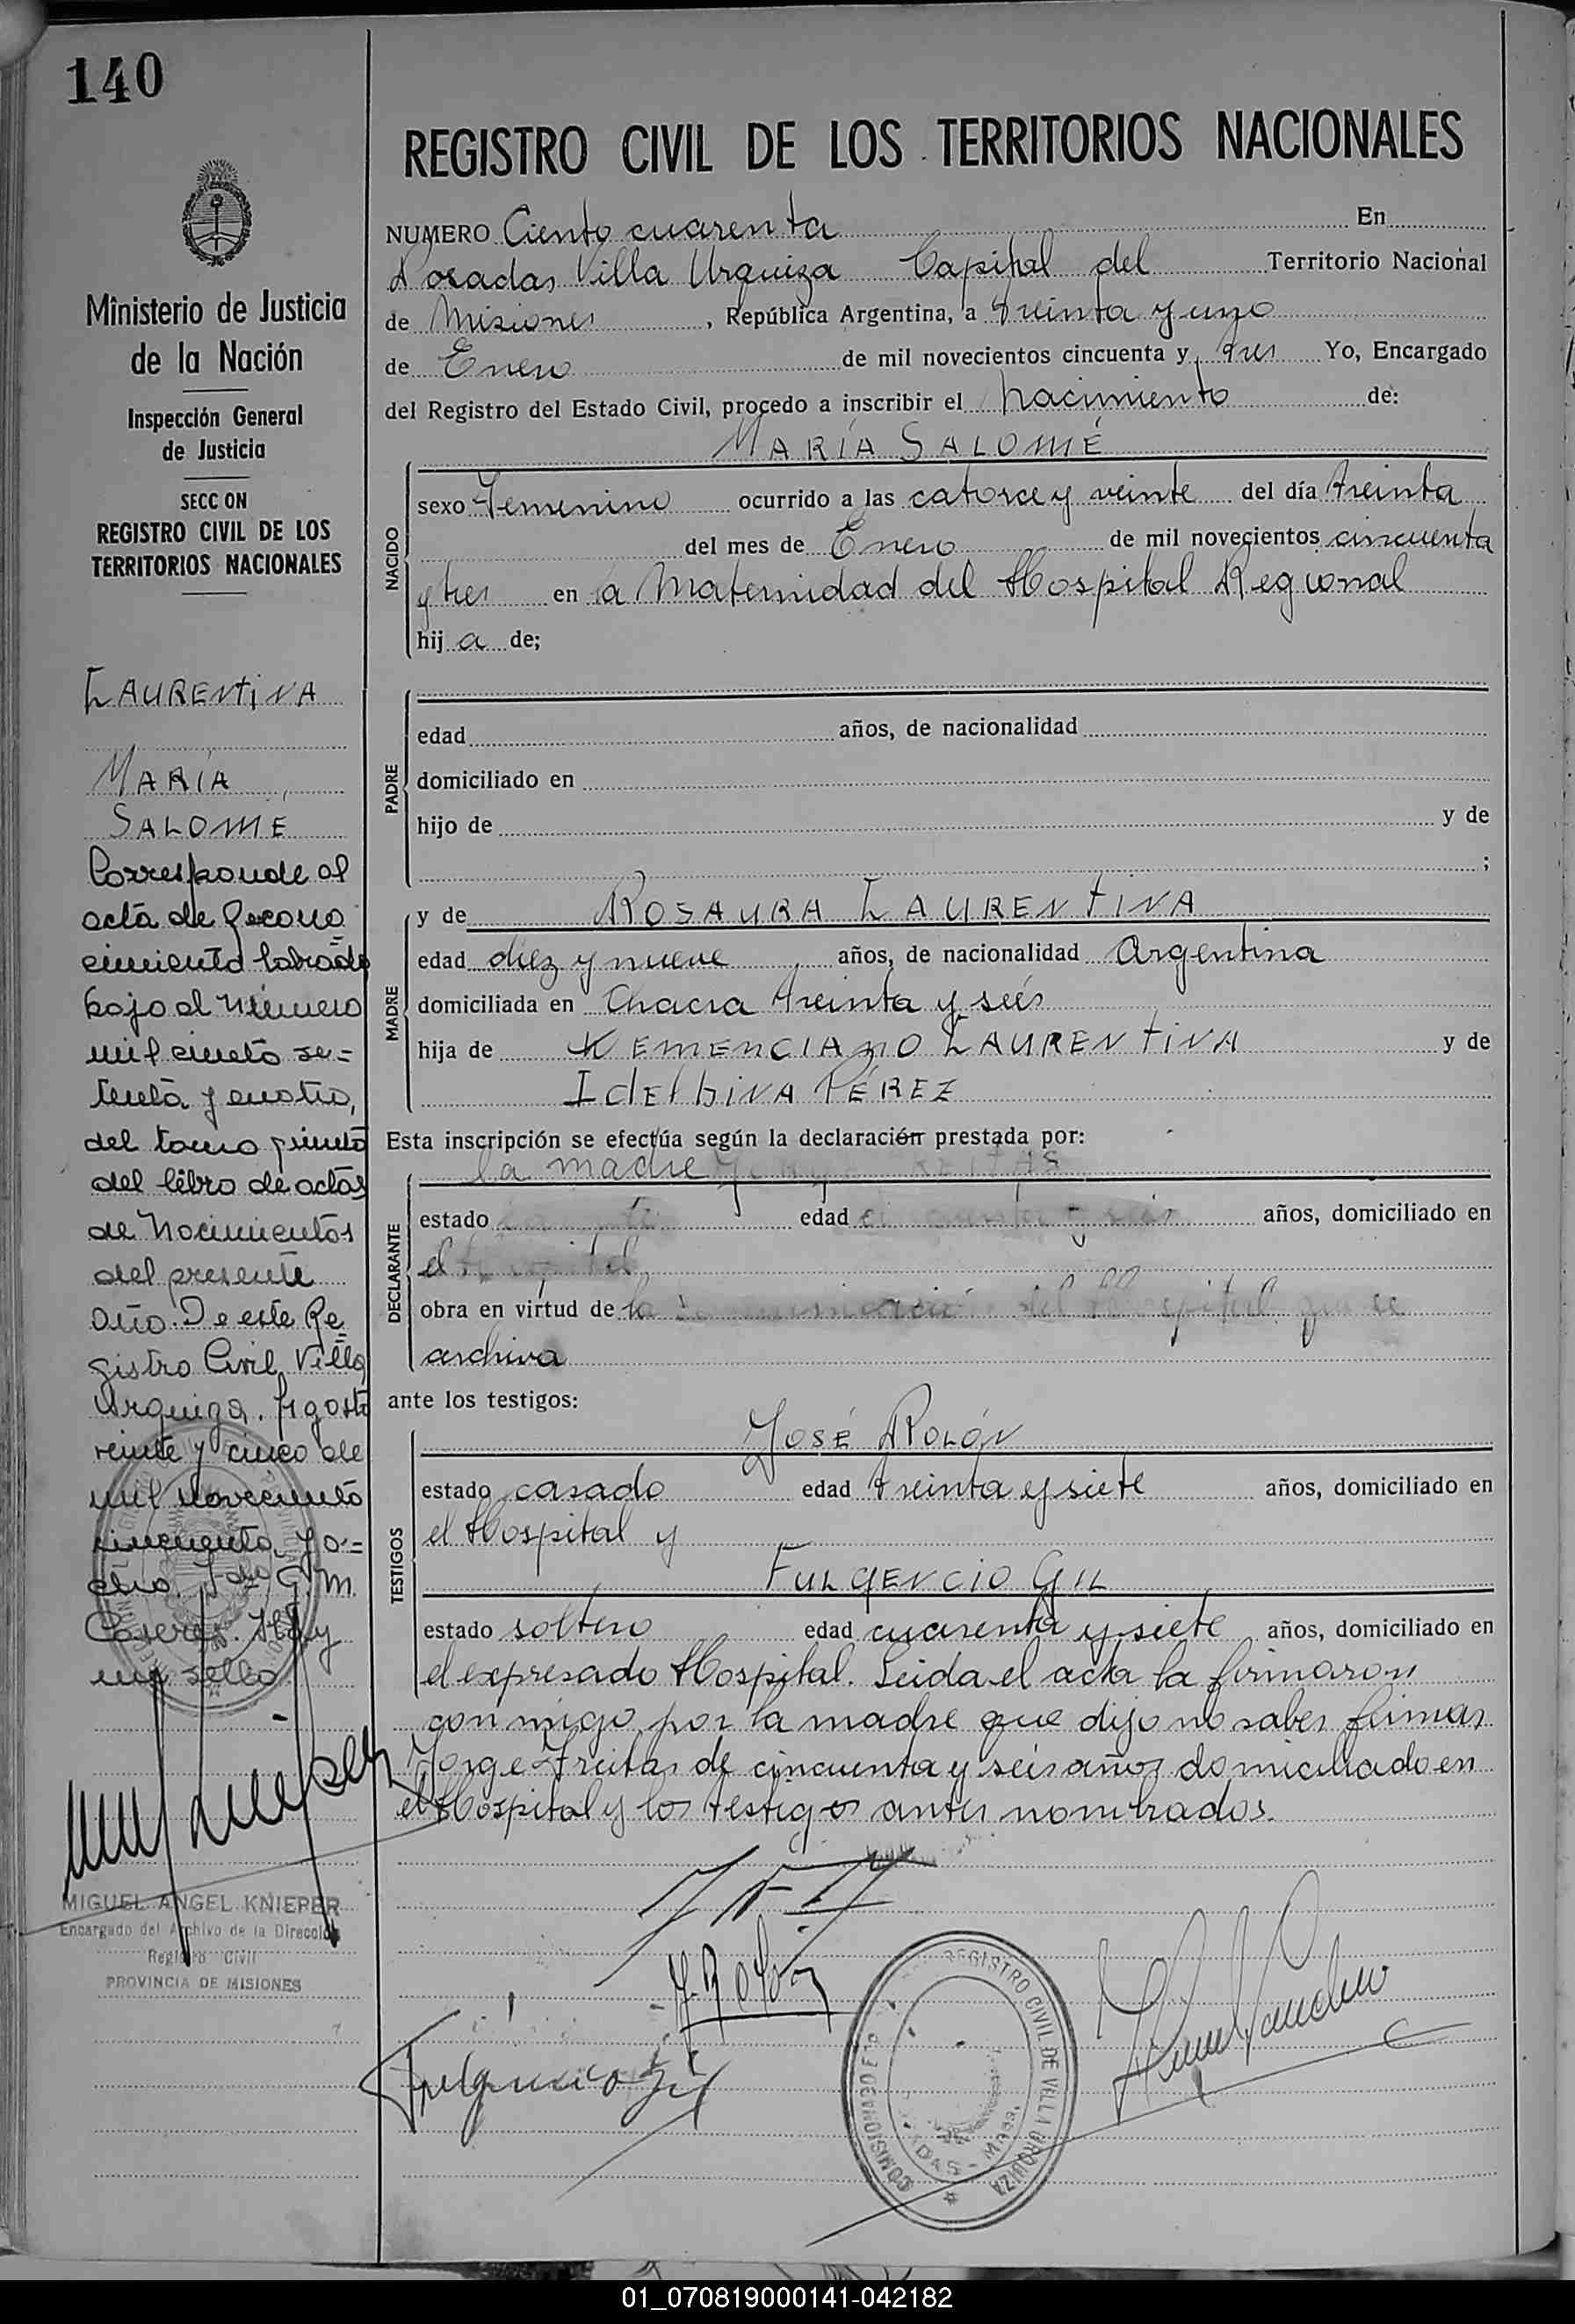 140
Ministerio de Justicia
de la Nación
Inspección General
de Justicia
SECC ON
REGISTRO CIVIL DE LOS
TERRITORIOS NACIONALES
LAURENTINA
MARÍA
SALOMÉ
Corresponde al
acta de recono
cimiento labrado
bajo el número
mil ciento se=
tenta y cuatro,
del tomo quinto
del libro de actas
de Nacimientos
del presente
año. De este Re
gistro Civil Villa
Urquiza. Agosto
veinte y cinco de
mil novecientos
cincuenta y o=
cho. G. M.
Caseres. Hay
un sello
MIGUEL ANGEL KNIEPER
Encargado del Archivo de la Dirección
Registro Civil
PROVINCIA DE MISIONES
REGISTRO CIVIL DE LOS TERRITORIOS NACIONALES
NUMERO Ciento cuarenta En
Posadas Villa Urquiza Capital del Territorio Nacional
de Misiones, República Argentina, a treinta y uno
de Enero de mil novecientos cincuenta y tres Yo, Encargado
del Registro del Estado Civil, procedo a inscribir el nacimiento de:
MARÍA SALOMÉ
NACIDO
sexo Femenino ocurrido a las catorce y veinte del día treinta
del mes de Enero de mil novecientos cincuenta
y tres en la Maternidad del Hospital Regional
hij a de;
PADRE
edad años, de nacionalidad
domiciliado en
hijo de y de
;
MADRE
y de ROSAURA LAURENTINA
edad diez y nueve años, de nacionalidad Argentina
domiciliada en Chacra treinta y seis
hija de LAURENTINA y de
PÉREZ
Esta inscripción se efectúa según la declaración prestada por:
DECLARANTE
la madre
estado edad años, domiciliado en
el
obra en virtud de la del Hospital que se
archiva
ante los testigos:
TESTIGOS
JOSÉ ROLÓN
estado casado edad treinta y siete años, domiciliado en
el Hospital y
FULGENCIO GIL
estado soltero edad cuarenta y siete años, domiciliado en
el expresado Hospital. Leida el acta la firmaron
con migo, por la madre que dijo no saber firmar
Jorge Freitas de cincuenta y seis años domiciliado en
el Hospital y los testigos antes nombrados.
J. Rolón
Fulgencio Gil
REGISTRO CIVIL DE VILLA URQUIZA
01_070819000141-042182